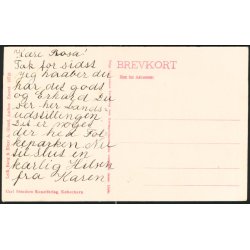 Kære Rosa!
Tak for sidst
jeg haaber du
har det godt
og Erkard Du
ser her Lands-
udstillingen
Det er noget
der hed Fol
keparken. Nu
Slut en
kærlig Hilsen
fra Karen
BREVKORT
Kun for Adressen.
Carl Stenders Kunstforlag, København